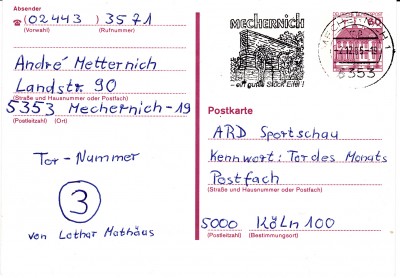 Absender
☎ (02443) 3571
(Vorwahl) (Rufnummer)
André Metternich
Landstr. 90
(Straße und Hausnummer oder Postfach)
5353 Mechernich-19
(Postleitzahl) (Ort)
Tor-Nummer
3
von Lothar Mathäus
MECHERNICH
– ein gutes Stück Eifel !
MECHERNICH 1
5353
60
Postkarte
ARD Sportschau
Kennwort: Tor des Monats
Postfach
(Straße und Hausnummer oder Postfach)
5000 Köln 100
(Postleitzahl) (Bestimmungsort)